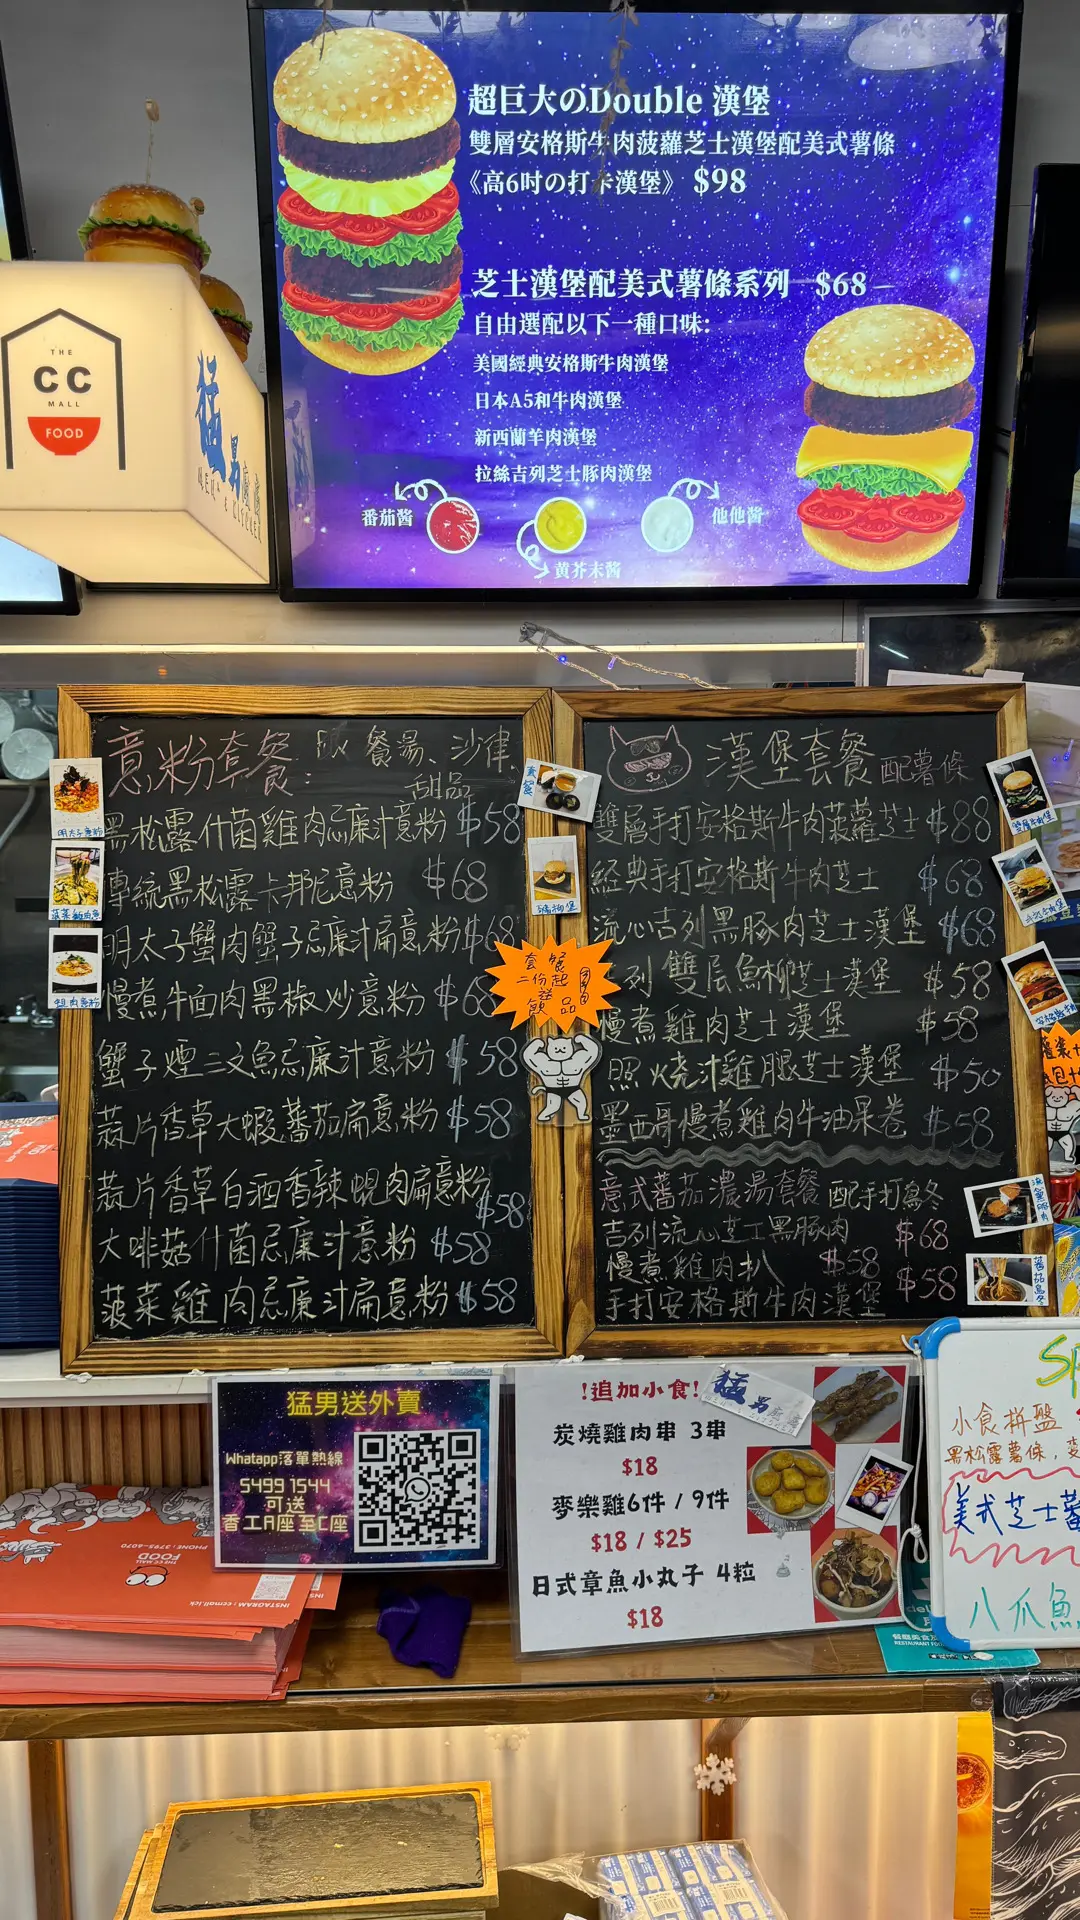 超巨大のDouble 漢堡
雙層安格斯牛肉菠蘿芝士漢堡配美式薯條
《高6吋の打卡漢堡》 $98
芝士漢堡配美式薯條系列 $68
自由選配以下一種口味:
美國經典安格斯牛肉漢堡
日本A5和牛肉漢堡
新西蘭羊肉漢堡
拉絲吉列芝士豚肉漢堡
番茄醬
他他醬
黄芥末醬
THE
CC
MALL
FOOD
猛男廚房
意粉套餐: 餐湯、沙律,
甜品
黑松露什菌雞肉忌廉汁意粉 $58
傳統黑松露卡邦尼意粉 $68
明太子蟹肉蟹子忌廉汁扁意粉 $68
慢煮牛面肉黑椒炒意粉 $68
蟹子煙三文魚忌廉汁意粉 $58
蒜片香草大蝦蕃茄扁意粉 $58
蒜片香草白酒香辣蜆肉扁意粉
$58
大啡菇什菌忌廉汁意粉 $58
菠菜雞肉忌廉汁扁意粉 $58
漢堡套餐 配薯條
雙層手打安格斯牛肉菠蘿芝士 $88
經典手打安格斯牛肉芝士 $68
流心吉列黑豚肉芝士漢堡 $68
列雙层魚柳芝士漢堡 $58
慢煮雞肉芝士漢堡 $58
照燒汁雞腿芝士漢堡 $50
墨西哥慢煮雞肉牛油果卷 $58
意式蕃茄濃湯套餐 配手打烏冬
吉列流心芝士黑豚肉 $68
慢煮雞肉扒 $58
手打安格斯牛肉漢堡 $58
套餐
二份起
送
飲品
明太子意粉
猛男送外賣
Whatapp落單熱線
5499 1544
可送
香工A座至C座
!追加小食!
炭燒雞肉串 3串
$18
麥樂雞6件 / 9件
$18 / $25
日式章魚小丸子 4粒
$18
小食拼盤
黑松露薯條,
美式芝士
八爪魚
INSTAGRAM : ccmall.ick
THE CC MALL
FOOD
PHONE: 3793-6070